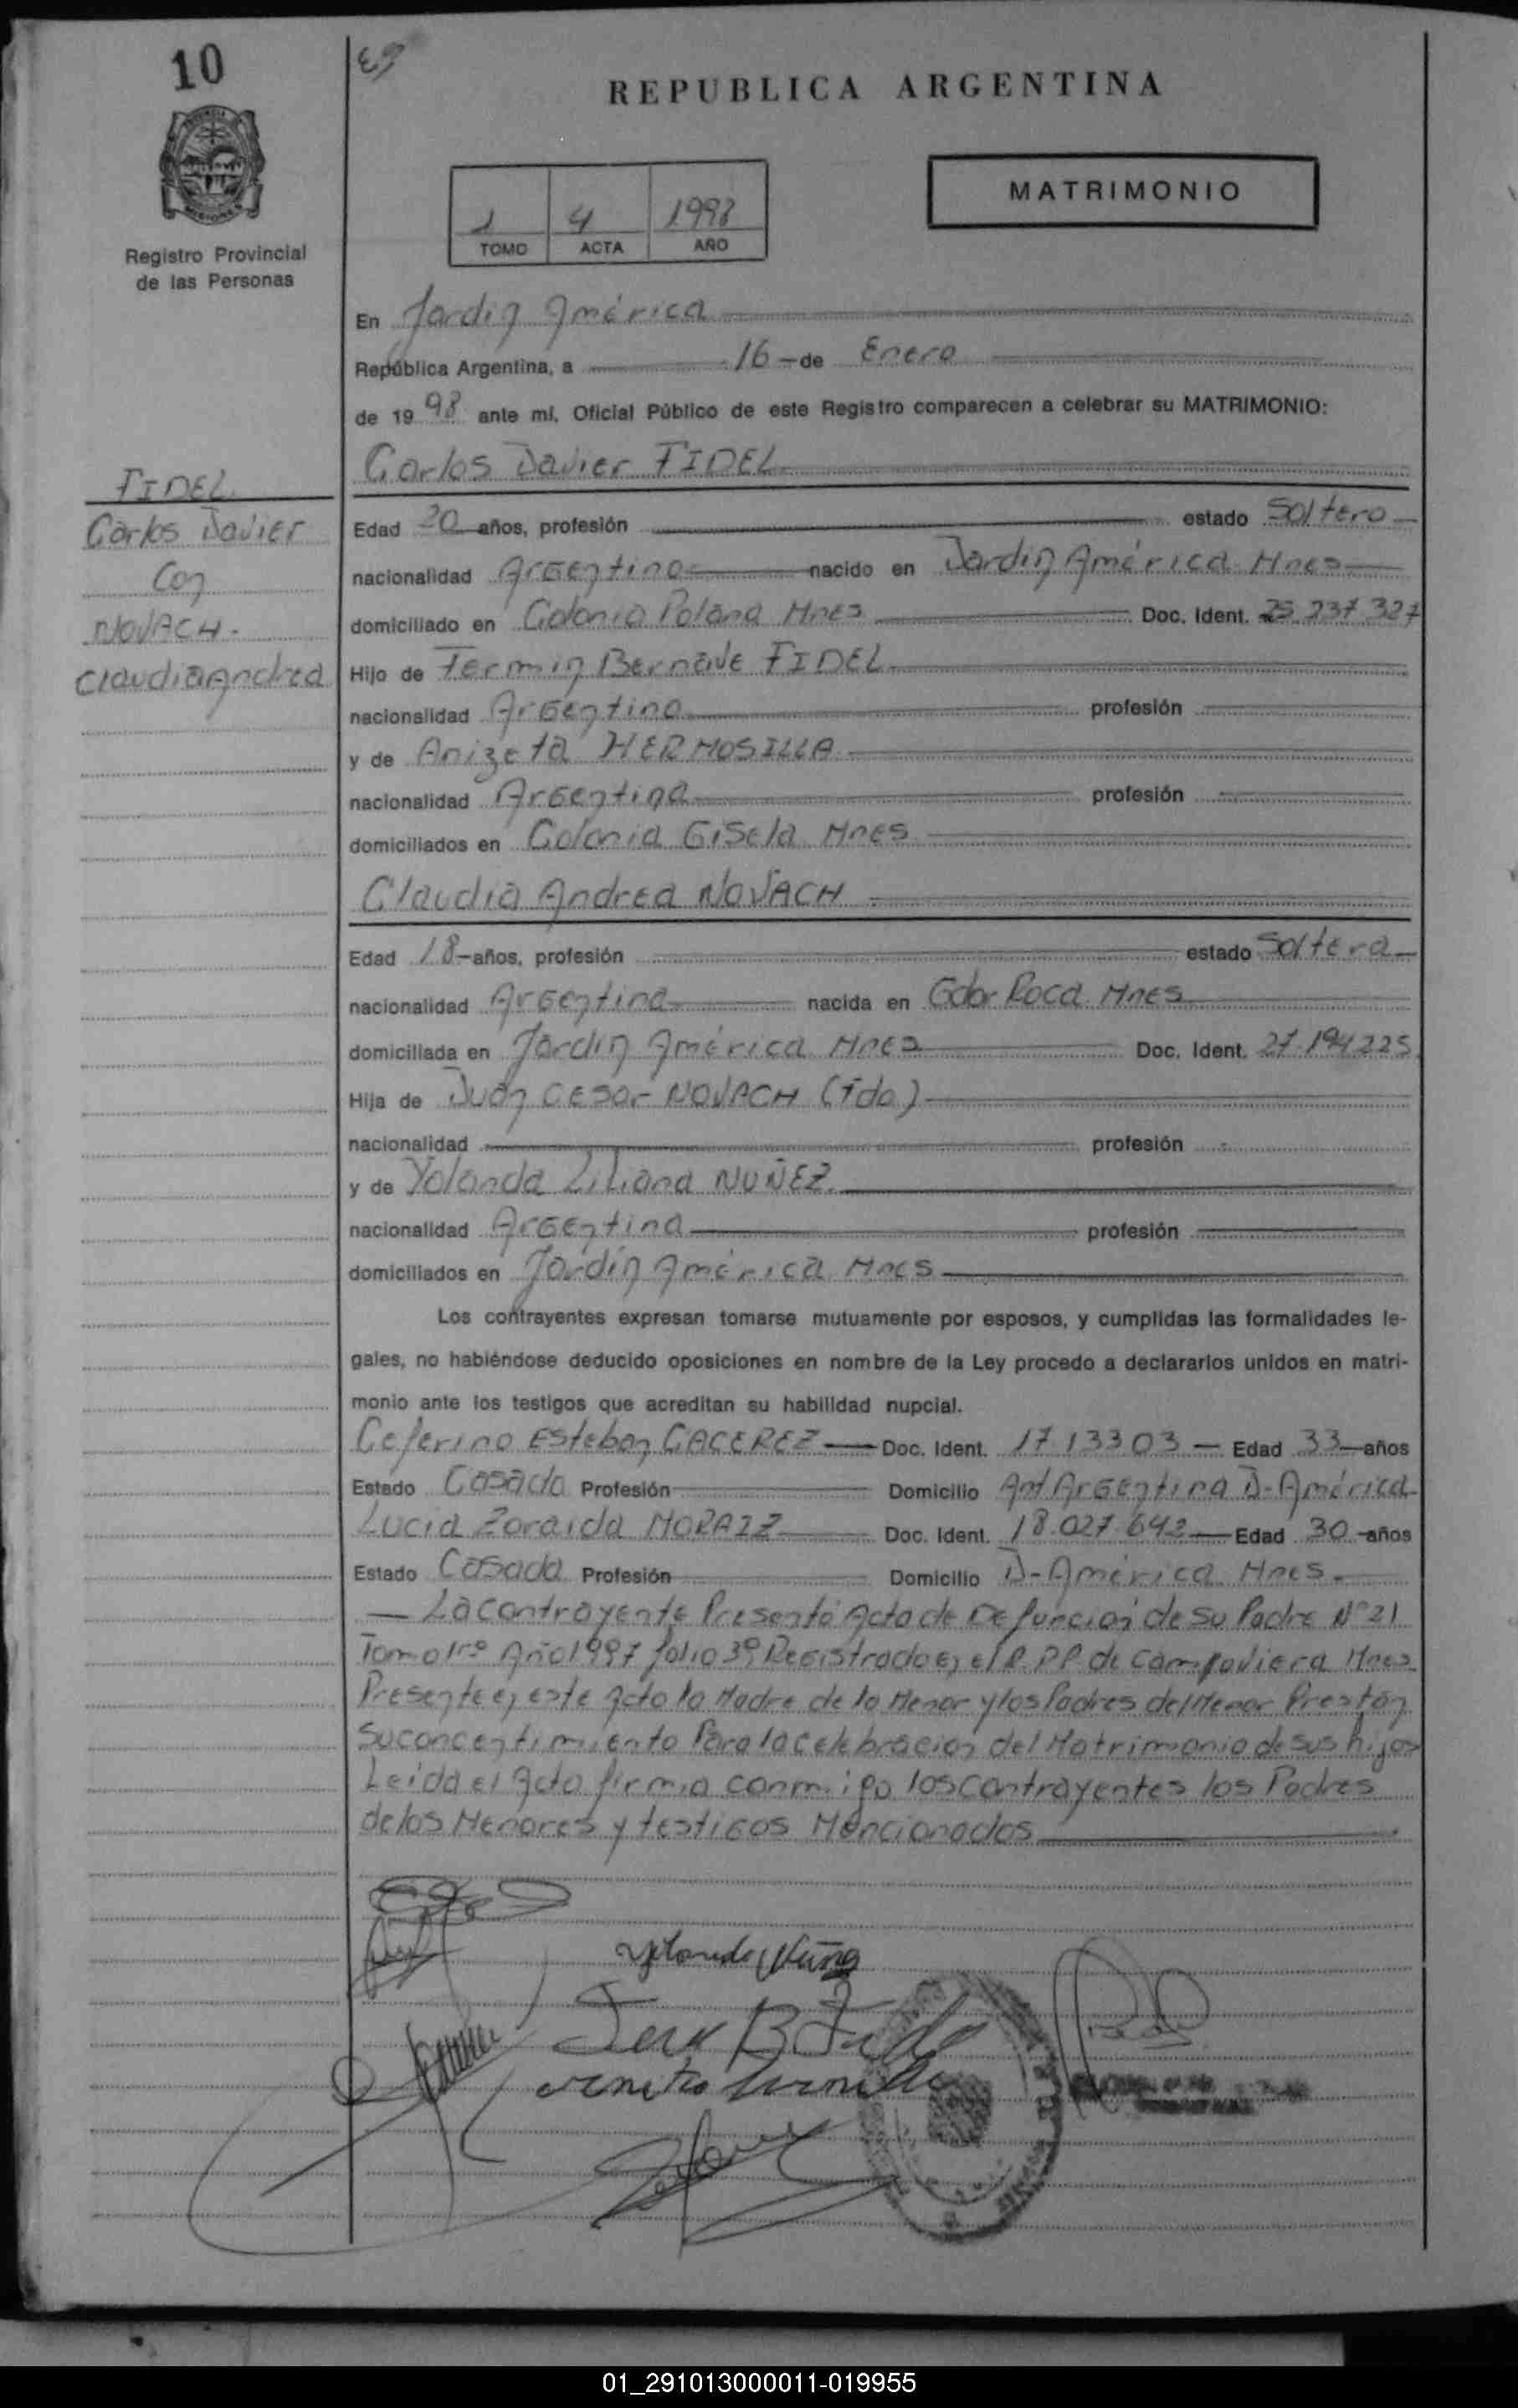 10
REPUBLICA ARGENTINA
MATRIMONIO
1 4 1998
TOMO ACTA AÑO
Registro Provincial
de las Personas
FIDEL
Carlos Javier
con
NOVACH.
Claudia Andrea
En Jardin América
República Argentina, a 16 de Enero
de 1998 ante mí, Oficial Público de este Registro comparecen a celebrar su MATRIMONIO:
Carlos Javier FIDEL
Edad 20 años, profesión estado Soltero
nacionalidad Argentino nacido en Jardin América Mnes
domiciliado en Colonia Polana Mnes Doc. Ident. 25.237.327
Hijo de Fermin Bernave FIDEL
nacionalidad Argentino profesión
y de Anizeta HERMOSILLA
nacionalidad Argentina profesión
domiciliados en Colonia Gisela Mnes
Claudia Andrea NOVACH
Edad 18 años, profesión estado Soltera
nacionalidad Argentina nacida en Gdor Roca Mnes
domiciliada en Jardin América Mnes Doc. Ident. 27.194.225
Hija de Juan Cesar NOVACH (Fdo)
nacionalidad profesión
y de Yolanda Liliana NUÑEZ
nacionalidad Argentina profesión
domiciliados en Jardín América Mnes
Los contrayentes expresan tomarse mutuamente por esposos, y cumplidas las formalidades le-
gales, no habiéndose deducido oposiciones en nombre de la Ley procedo a declararlos unidos en matri-
monio ante los testigos que acreditan su habilidad nupcial.
Ceferino Esteban CACEREZ Doc. Ident. 1713303 Edad 33 años
Estado Casado Profesión Domicilio Ant Argentina J-América
Lucia Zoraida MORAIZ Doc. Ident. 18.027.642 Edad 30 años
Estado Casada Profesión Domicilio J-América Mnes
La contrayente Presentó Acta de Defuncion de su Padre N° 21
Tomo 1ro Año 1997 folio 3° Registrado en el R.P.P de Campo viera Mnes
Presente en este Acto la Madre de la Menor y los Padres del Menor Prestan
su concentimiento Para la celebracion del Matrimonio de sus hijos
Leida el Acta firma conmigo los contrayentes los Padres
de los Menores y testigos Mencionados
01_291013000011-019955